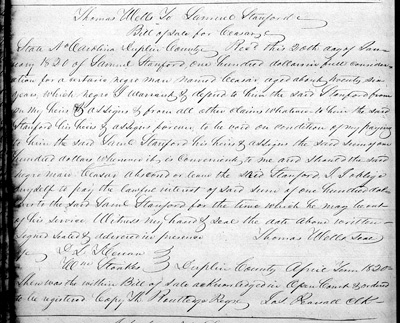 Thomas Wells To Samuel Stanford
Bill of Sale for Ceasar
State No Carolina Duplin County Recd this 20th day of Jan
uary 1820 of Samuel Stanford one hundred dollars in full consider
ation for a certain negro man named Ceasar aged about twenty six
years, which negro I warrant & defend to him the said Stanford from
me my heirs & assigns & from all other claims whatever to him the said
Stanford his heirs & assigns forever to be void on condition of my paying
to him the said Saml Stanford his heirs & assigns the said sum of one
hundred dollars whenever it is convenient to me and should the said
negro man Ceasar abscond or leave the said Stanford I oblige
myself to pay the lawful interest of said sum of one hundred dol
lars to the said Saml Stanford for the time which he may want
of his service Witness my hand & seal the date above written
Signed sealed & delivered in presence Thomas Wells Seal
of
Wm Stokes Duplin County April Term 1820
Then was the within Bill of Sale acknowledged in Open Court & ordered
to be registered Copy Regr Jas Pearsall Clk